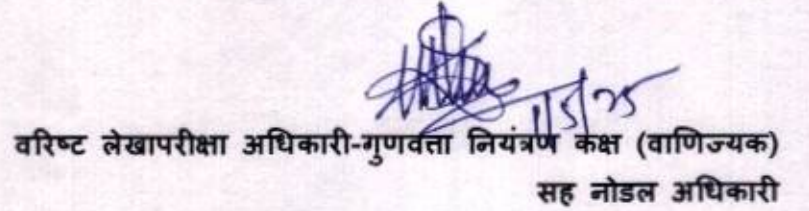 1/5/25
वरिष्ट लेखापरीक्षा अधिकारी-गुणवत्ता नियंत्रण कक्ष (वाणिज्यक)
सह नोडल अधिकारी